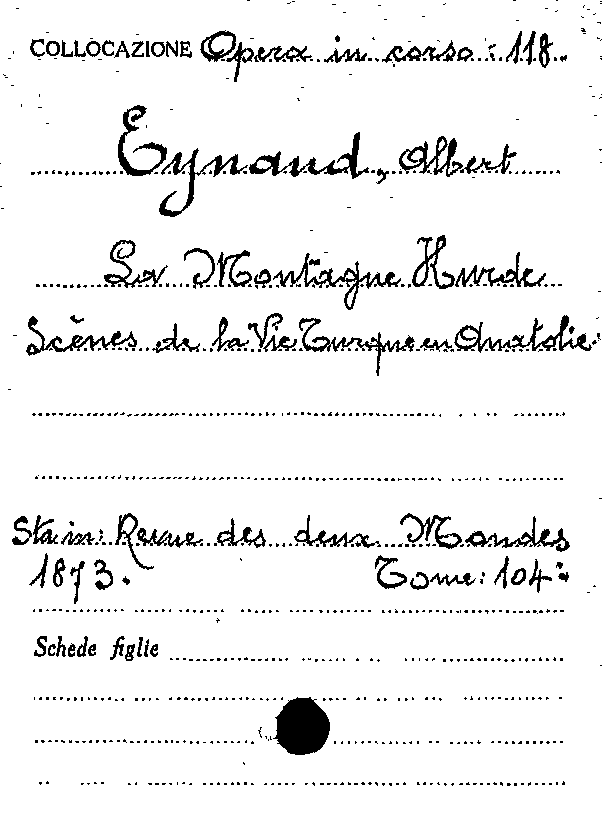 COLLOCAZIONE Opera in corso: 118.
Eynaud, Albert
La Montagne Kurde
Scènes de la Vie Turque en Anatolie
Sta in: Revue des deux Mondes
1873. Tome: 104
Schede figlie